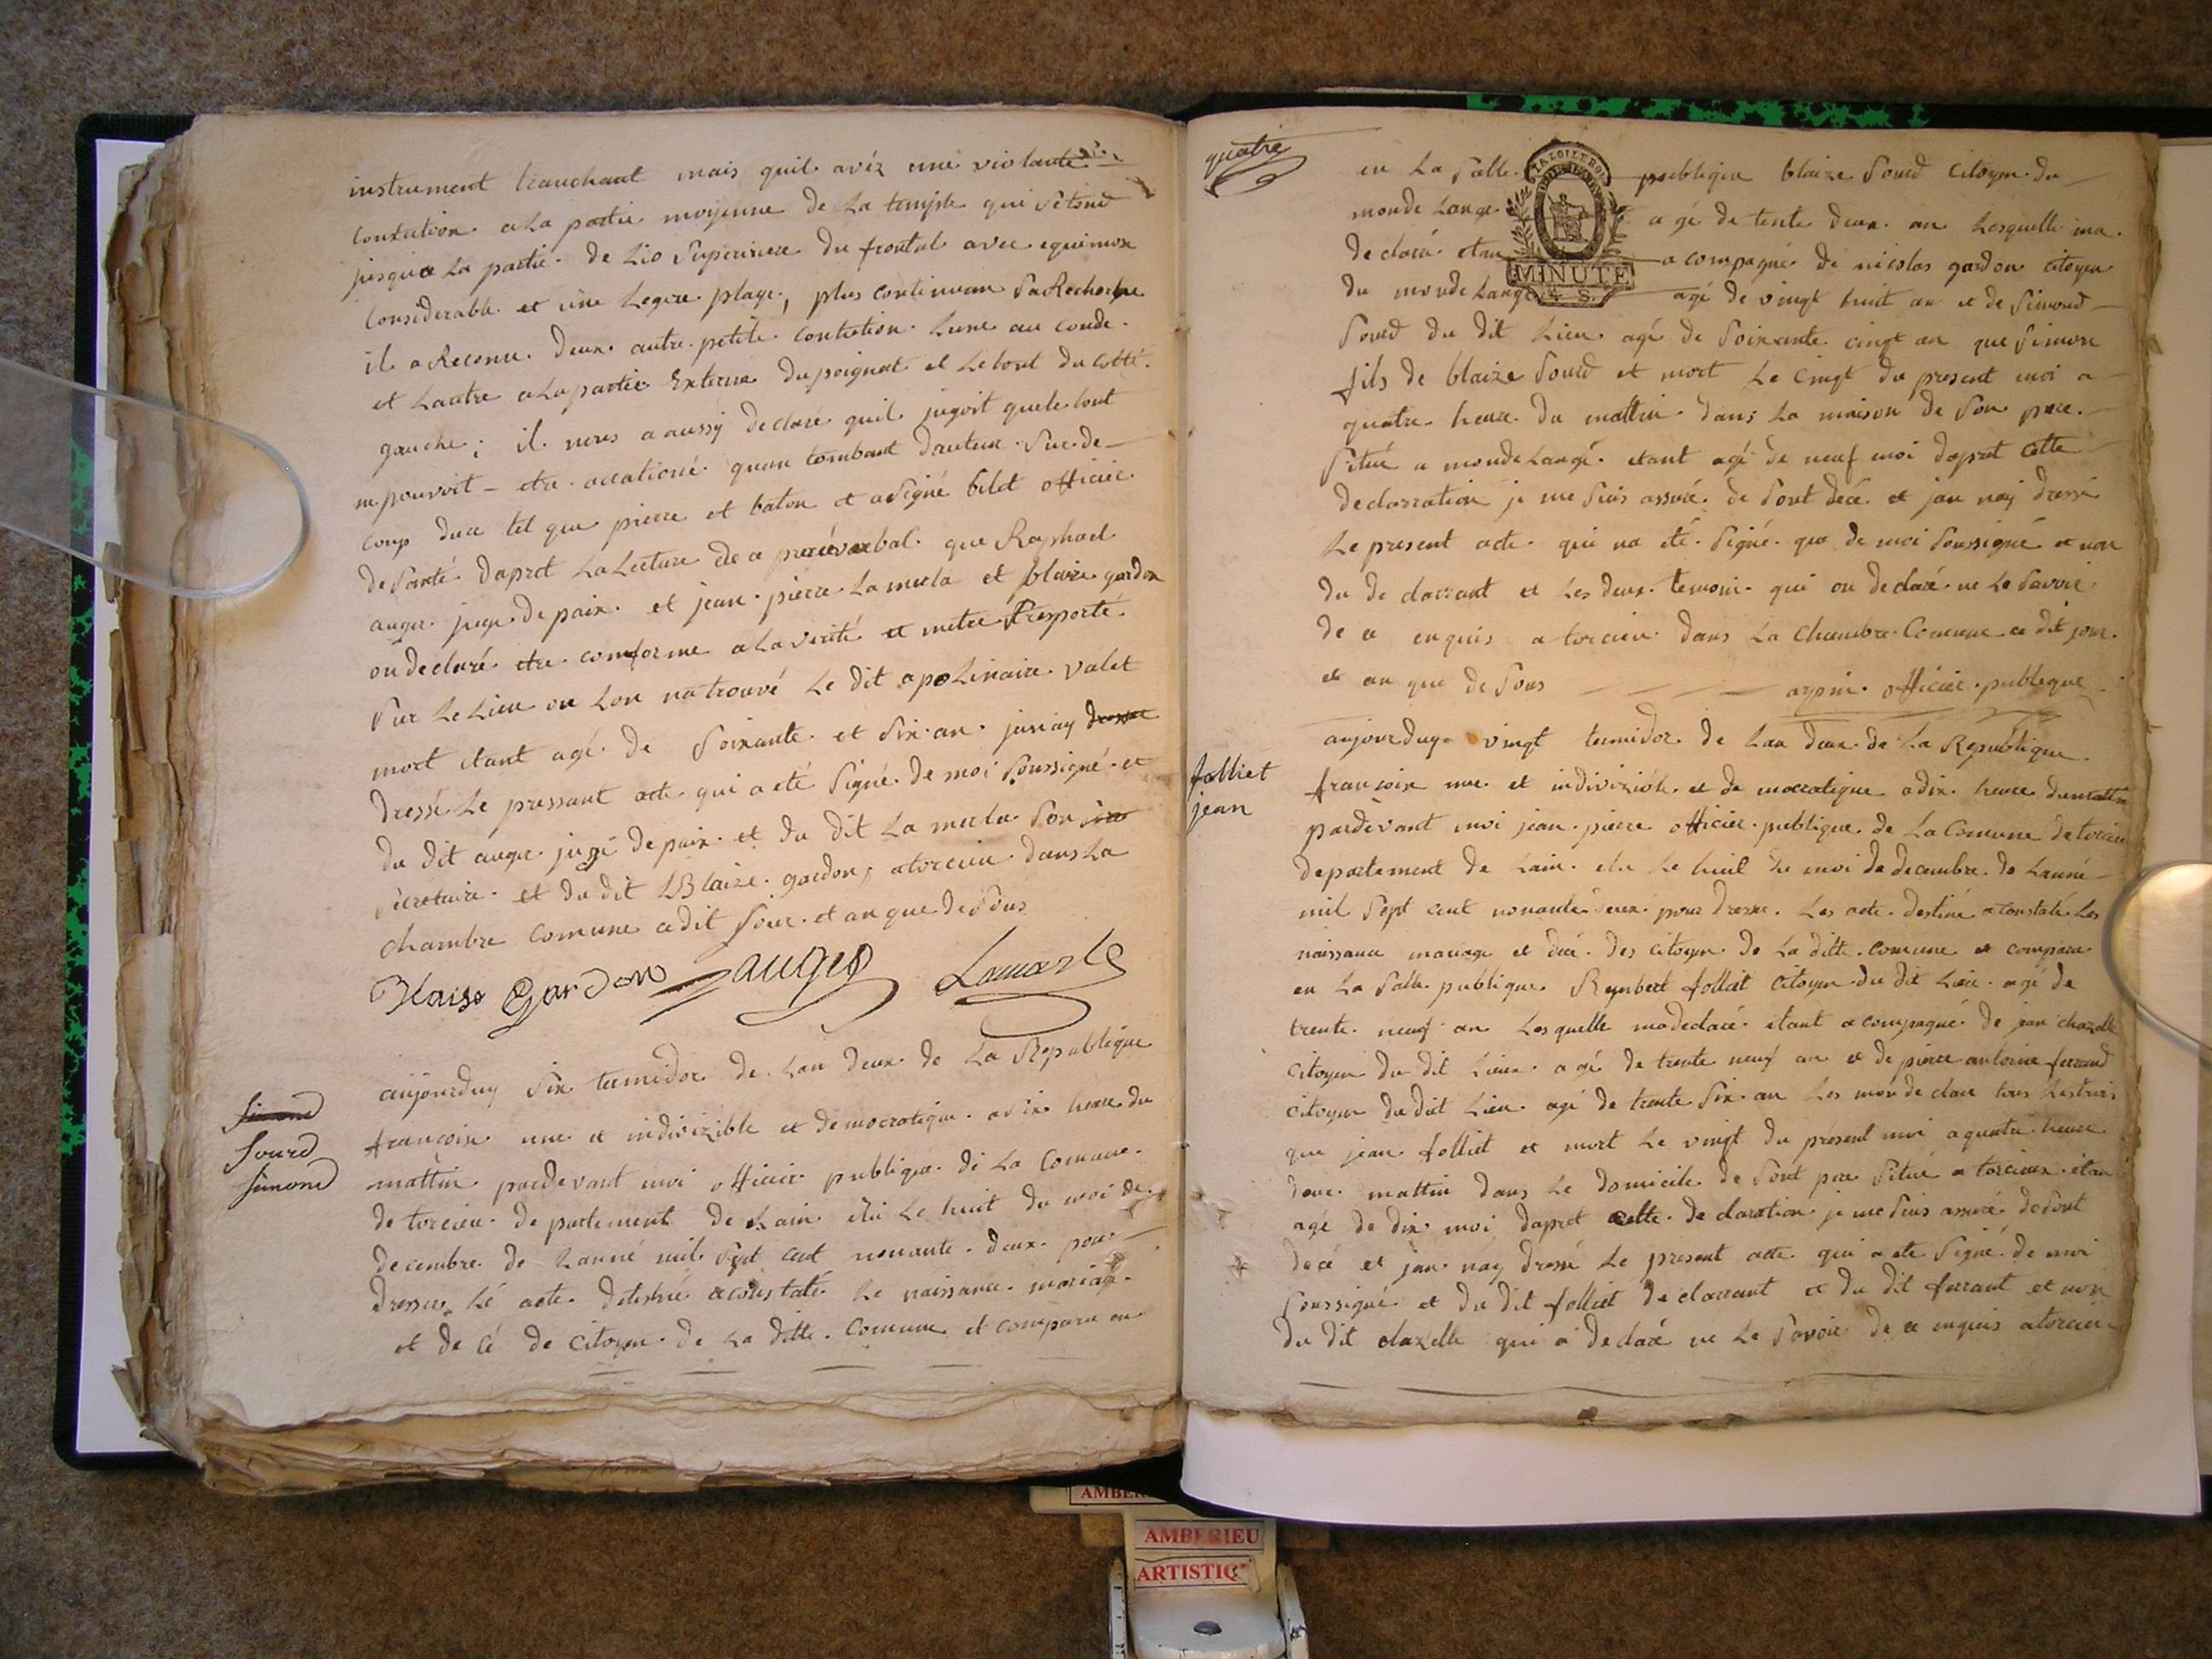 instrument tranchant mais quil avéz une violante
contution a la partie moyenne de la temple qui sétend
jusqua la partie de Lio superieure du frontal avec equimox
Considerable et une Legere playe, plus continuan sa Recherche
il a Reconu deux autre petite contution lune au coude
et Lautre a la partie Externe du poignet et le tout du cotté
gauche ; il nous a aussy declaré quil jugoit que le tout
ne pouvoit etre occationé quan tombant dauteur sur de
coup dure tel que pierre et baton et a signé bilet officier
de santé dapret La Lecture de ce procéverbal que Raphael
auger juge de paix et jean pierre Lamerla et blaize gardon
on declaré etre conforme a la verité et metre tresporté
sur Le Lieu ou Lon na trouvé Le dit apolinaire valet
mort etant agé de soixante et six an jan ay dresse
dressé Le pressant acte qui a été signé de moi soussigné et
du dit auger jugé de paix et du dit La merla son
secretaire et du dit Blaize gardon, a torcieu dans La
chambre comune ce dit jour et an que desous
Blaise Gardon auger Lamerle
Simond
Sourd
Simond
aujourduy six termidor de Lan deux de La Republique
françoise une et indivizible et democratique a six heure du
mattin pardevant moi officier publique de La Comune
de torcieu departement de Lain élu Le huit du moi de
decembre de Lanné mil sept cent nonante deux pour
dresser Lé acte detisné a constaté Le naissance mariage
et decé de Citoyen de La ditte Comune et comparu en
quatre
en La salle publique blaize Sourd Citoyen du
monde Lange agé de tente deux an Lesquelle ma
declaré etan acompagné de nicolas gardon citoyen
du monde Lange agé de vingt huit an et de Simond
Sourd du dit Lieu agé de soixante cinqt an que Simon
fils de blaize Sourd et mort Le Cinqt du present moi a
quatre heure du mattin dans La maison de son pere
situé a monde Langé etant agé de neuf moi dapret cette
declarration je me suis assuré de sont decé et jan nay dressé
Le present acte qui na été signé que de moi soussigné et non
du declarrant et Les deux temoin qui on declaré ne Le savoir
de ce enquis a torcieu dans La Chambre Comune ce dit jour
et an que desous officier publique
MINUTE
4 S.
folliet
jean
aujourduy vingt termidor de Lan deux de La Republique
françoise une et indivizible et democratique a dix heure du mattin
pardevant moi jean pierre officier publique de La Comune de torcieu
departement de Lain elu Le huit du moi de decembre de Lanné
mil sept cent nonante deux pour dresser Les acte destiné a constaté Les
naissance mariage et decé des citoyen de La ditte comune et comparu
en La salle publique Rembert folliet Citoyen du dit Lieu agé de
trente neuf an Lesquelle ma declaré étant acompagné de jean chazelle
Citoyen du dit Lieux agé de trente neuf an et de pierre antoine ferrand
citoyen du dit Lieu agé de trente six an Les mon declare tous Lestrois
que jean folliet et mort Le vingt du présent moi a quatre heure
du mattin dans Le domicile de sont pere situé a torcieux etan
agé de dix moi daprèt cette declaration je me suis assuré de sont
decé et jan nay dressé Le present acte qui a été signé de moi
soussigné et du dit folliet declarrant et du dit ferrant et non
du dit chazelle qui a declaré ne Le savoir de ce enquis a torcieu
AMBERIEU
ARTISTIQ